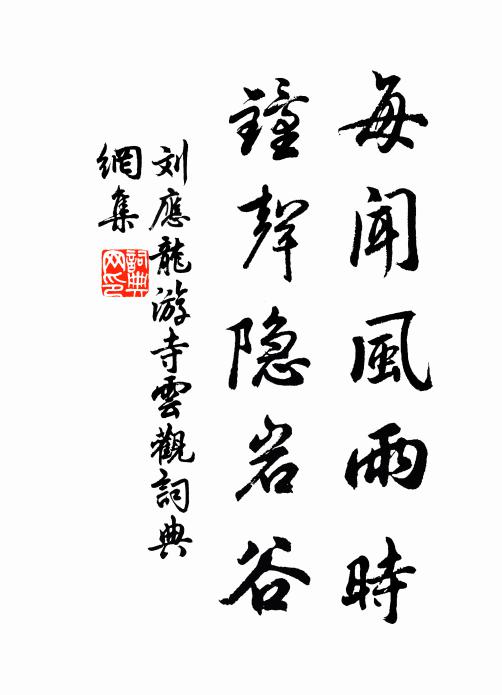 每闻風雨時
鐘聲隐岩谷
刘應龍游寺雲觀詞典
網集
詞典网印